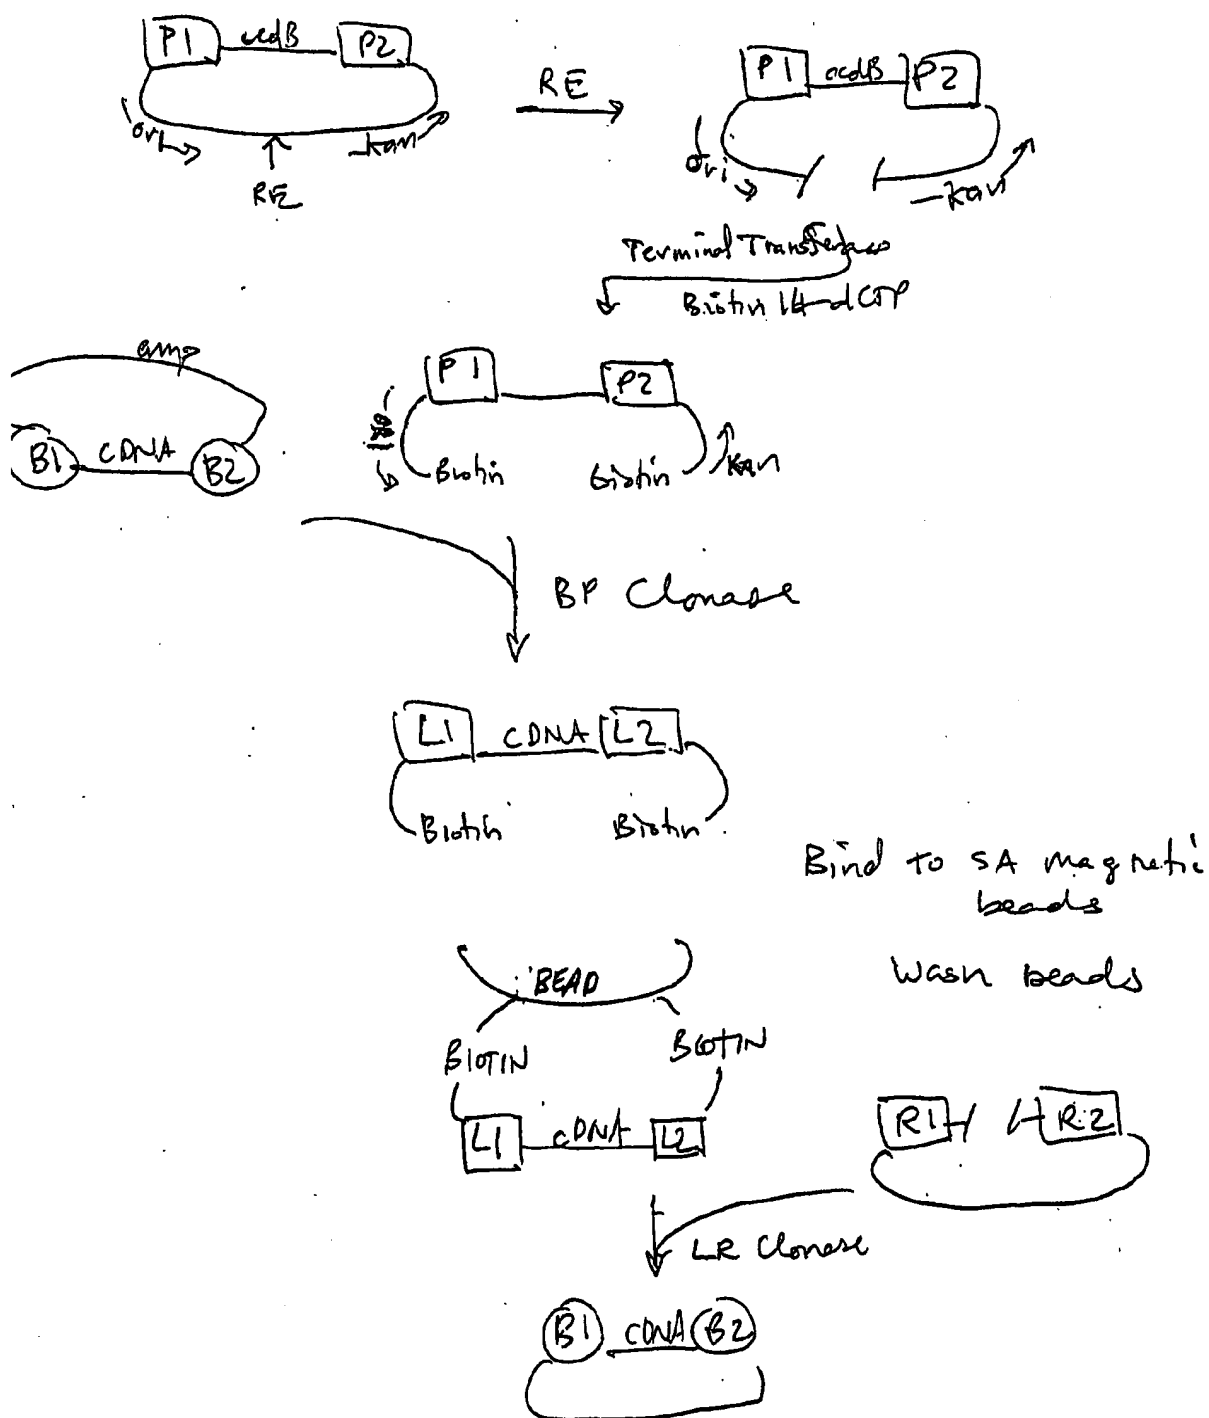 P1 ccdB P2
ori
kan
RE
RE
P1 ccdB P2
ori
kan
Terminal Transferase
Biotin 14-dCTP
amp
B1 cDNA B2
P1 P2
ori
Biotin Biotin
kan
BP Clonase
L1 cDNA L2
Biotin Biotin
Bind to SA magnetic
beads
Wash beads
BEAD
BIOTIN BIOTIN
L1 cDNA L2
R1 R2
LR Clonase
B1 cDNA B2